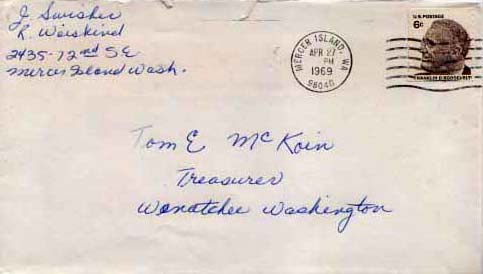 J Swisher
R. Weiskind
2435-72nd S E
Mercer Island Wash.
MERCER ISLAND, WA
APR 27
PM
1969
98040
U.S. POSTAGE
6¢
FRANKLIN D. ROOSEVELT
Tom E McKoin
Treasurer
Wenatchee Washington